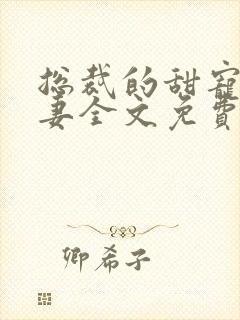 总裁的甜宠
妻全文免费
卿希子